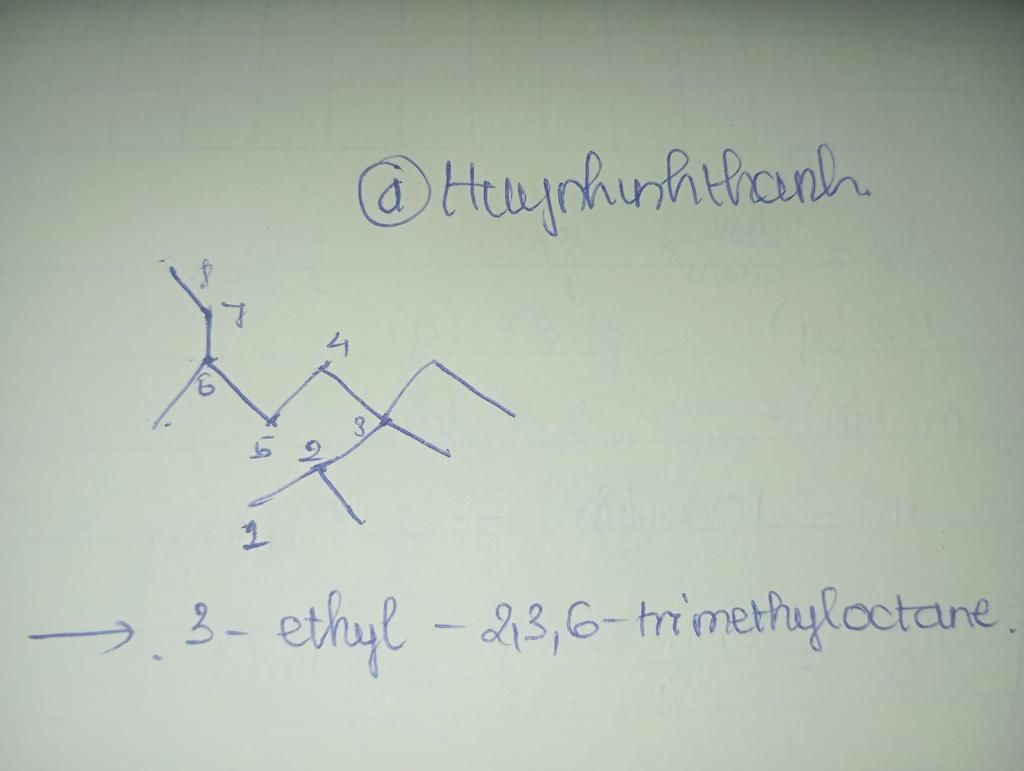 @Huynhunhthanh.
8
7
4
6
3
5
2
1
→ 3-ethyl-2,3,6-trimethyloctane.